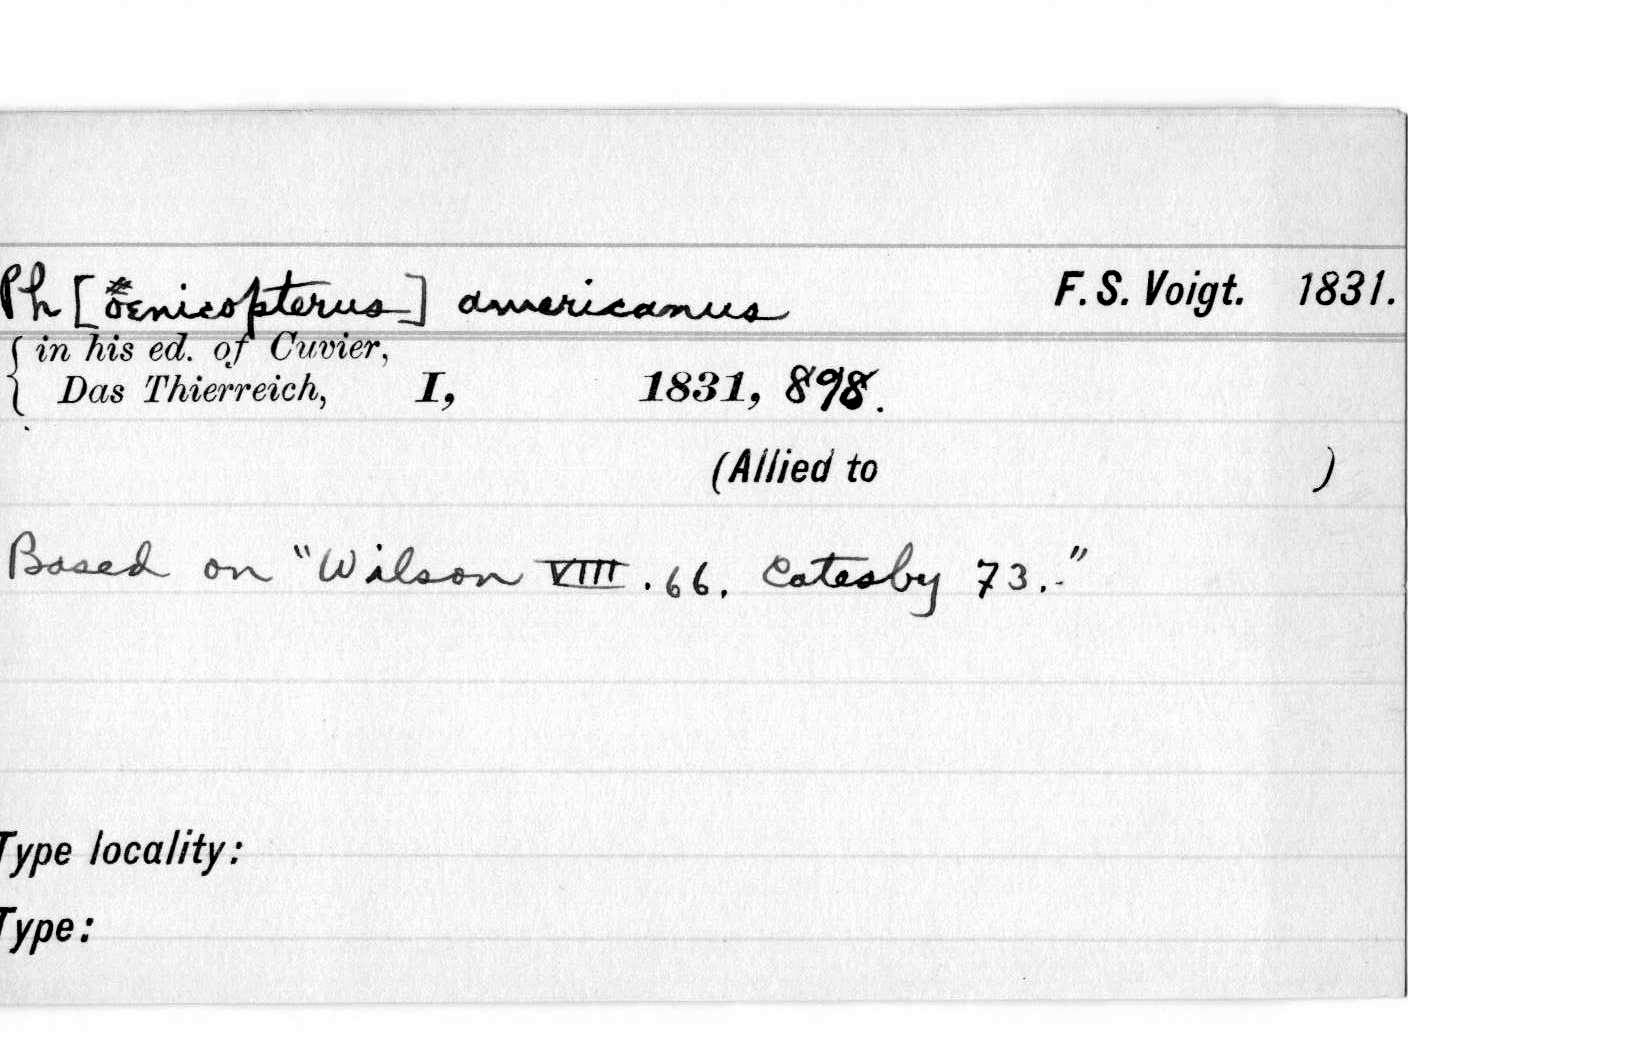 Ph [oenicopterus] americanus F. S. Voigt. 1831.
in his ed. of Cuvier,
Das Thierreich, I, 1831, 898.
(Allied to )
Based on "Wilson VIII. 66. Catesby 73.-"
Type locality:
Type: